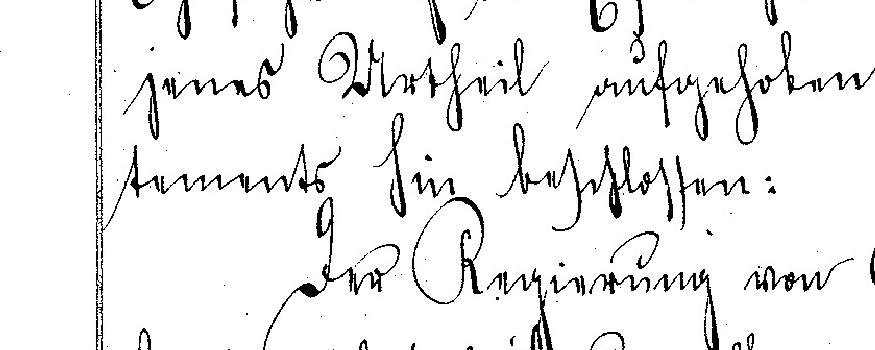 jenes Urtheil aufgehoben
tements hin beschlossen:
Der Regierung von